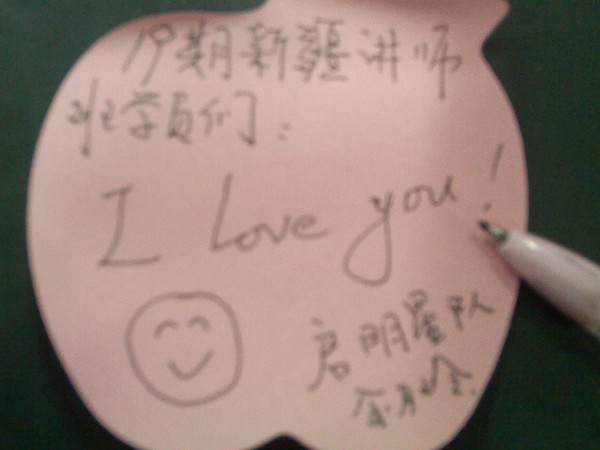 19期新疆讲师
班学员们:
I Love you!
启明星队